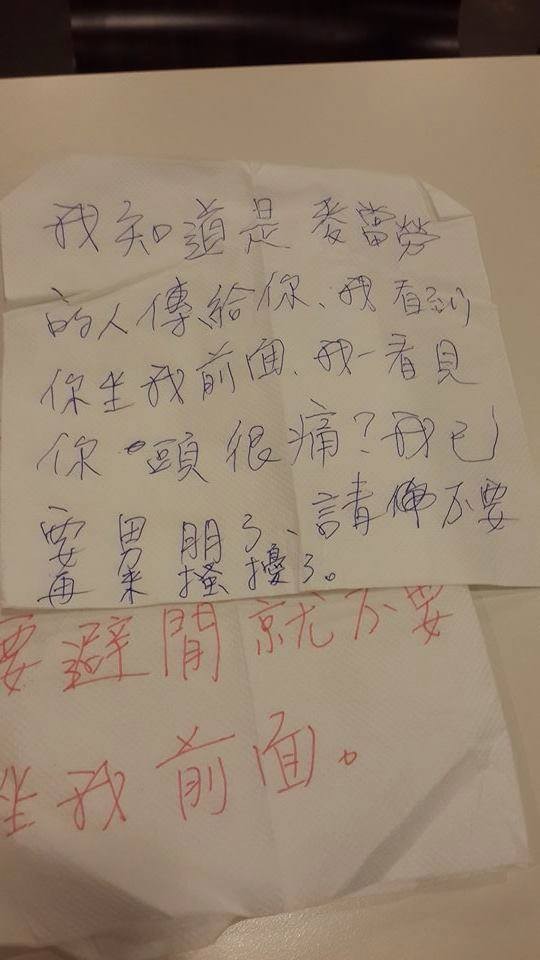 我知道是麥當勞
的人傳給你、我看到
你坐我前面、我一看見
你頭很痛?我已
要累朋了、請你不要
再來搔擾了。
要避開就不要
坐我前面。